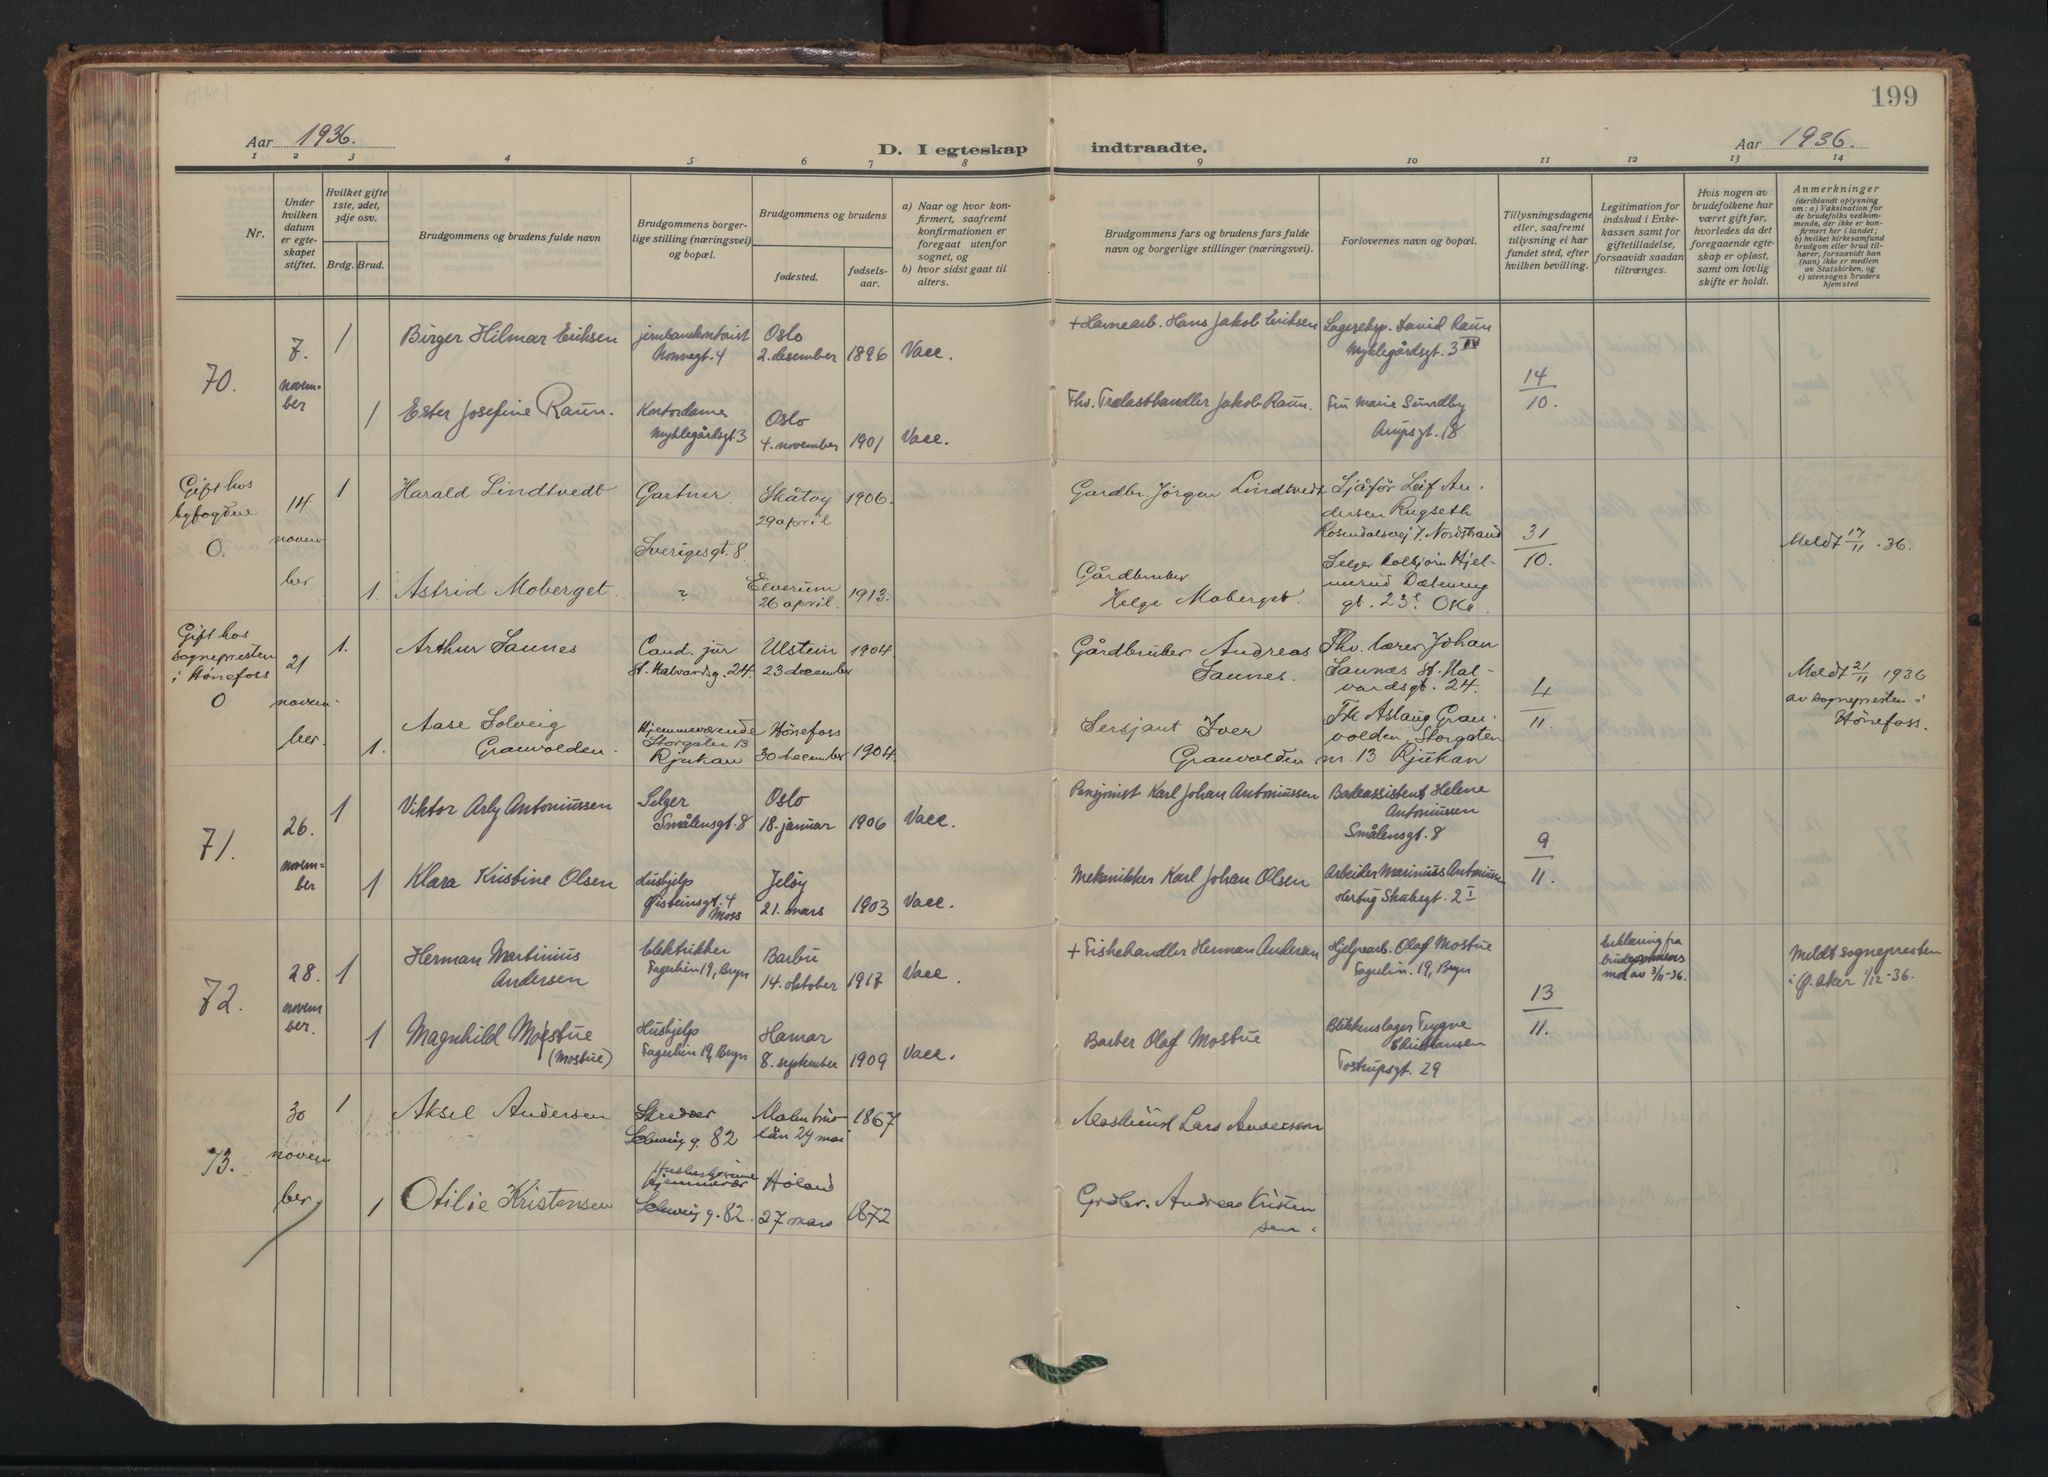 199
Aar 1936.
D. I egteskap indtraadte.
Aar 1936.
1 2 3 4 5 6 7 8 9 10 11 12 13 14
Nr.
Under hvilken datum er egteskapet stiftet.
Hvilket gifte 1ste, 2det, 3dje osv.
Brdg. Brud.
Brudgommens og brudens fulde navn
Brudgommens borgerlige stilling (næringsvei) og bopæl.
Brudgommens og brudens
fødested. fødselsaar.
a) Naar og hvor konfirmert, saafremt konfirmationen er foregaat utenfor sognet, og
b) hvor sidst gaat til alters.
Brudgommens fars og brudens fars fulde navn og borgerlige stillinger (næringsvei).
Forlovernes navn og bopæl.
Tillysningsdagene eller, saafremt tillysning ei har fundet sted, efter hvilken bevilling.
Legitimation for indskud i Enkekassen samt for giftetilladelse, forsaavidt saadan tiltrænges.
Hvis nogen av brudefolkene har været gift før, hvorledes da det foregaaende egteskap er opløst, samt om lovlig skifte er holdt.
Anmerkninger (deriblandt oplysning om: a) Vaksination for de brudefolks vedkommende, der ikke er konfirmert her i landet; b) hvilket kirkesamfund brudgom eller brud tilhører, forsaavidt han (hun) ikke er medlem av Statskirken, og c) utensogns bruders hjemsted
70.
7. november
1 Birger Hilmar Eriksen
jernbanekontorist
Nonnegt. 4
Oslo
2. desember 1896 Vacc.
+ Havnearb. Hans Jakob Eriksen
Lagereksp. David Raun
Myklegårdsgt. 3 IV
14/10.
1 Ester Josefine Raun.
Kontordame
Myklegårdsgt 3
Oslo
4. november 1901 Vacc.
Fhv. Trælasthandler Jakob Raun.
Fru Marie Sundby
Arupsgt. 18
Gift hos
byfogden
O.
14 november
1 Harald Lindtvedt
Gartner.
Sverigesgt. 8
Skåtøy 1906.
29 april
Gardbr. Jörgen Lindtvedt
Sjåfør Leif Andersen Rugseth
Rosendalsvej 7. Nordstrand
31/10.
Meldt 17/11. 36.
1. Astrid Moberget.
?
Elverum
26 april. 1913.
Gårdbruker
Helge Moberget.
Selger Kolbjørn Hjelmerud Dælenenggt. 23 Oslo.
Gift hos
sognepresten
i Hönefoss
O
21 november.
1. Arthur Saunes
Cand. jur
St. Halvardsg. 24.
Ulstein 1904.
23 december
Gårdbruker Andreas
Saunes.
Fhv. lærer Johan
Saunes St. Halvardsgt. 24.
4/11.
Meldt 21/11 1936
av sognepresten i
Hönefoss.
1. Aase Solveig
Granvolden.
Hjemmeværende
Storgaten 13
Rjukan
Hönefoss
30 december 1904.
Sersjant Iver
Granvolden
Frk Aslaug Granvolden, Storgaten
nr. 13 Rjukan
71.
26. november
1 Viktor Arly Antoniussen
Selger
Smålensgt. 8
Oslo
18. januar 1906 Vacc.
Pensjonist Karl Johan Antoniussen
Badeassistent Helene
Antoniussen
Smålensgt. 8
9/11.
1 Klara Kristine Olsen
Hushjelp
Øisteinsgt. 4
Moss
Jeløy
21. mars 1903 Vacc.
Mekanikker Karl Johan Olsen
Arbeider Marinius Antoniussen
Hertug Skulesgt. 2 I
72.
28. november.
1 Herman Martinius
Andersen
Elektrikker
Fagerlin 19, Bryn
Barbu
14. oktober 1917 Vacc.
+ Fiskehandler Herman Andersen
Hjelpearb. Olaf Mostue
Fagerlin. 19, Bryn
13/11.
Erklæring fra
brudgommens
mor av 3/11-36.
Meldt sognepresten
i Ø. Aker 1/12-36.
1 Magnhild Mostue
(Mostue)
Hushjelp
Fagerlin 19, Bryn
Hamar
8. september 1909 Vacc.
Barber Olaf Mostue
Blikkenslager Trygve
Christiansen
Tostrupsgt. 29
73.
30 november
1 Aksel Andersen
Skredder
Schweig. 82
Malmöhus
län 29 mai 1867
Maskinist Lars Andersson
1 Otilie Kristensen
Husbestyrerinne
Hjemmevær
Schweig. 82.
Høland
27 mars 1872
Grdbr. Andreas Kristensen.